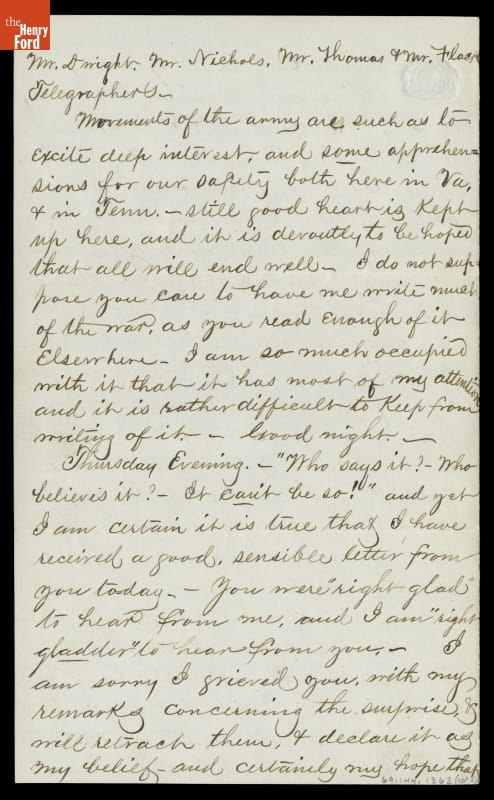 the
Henry
Ford
Mr. Dwight, Mr. Nichols, Mr. Thomas & Mr. Flack
Telegraphers –
Movements of the army are such as to
excite deep interest, and some apprehen=
sions for our safety both here in Va,
& in Tenn. – still good heart is kept
up here, and it is devoutly to be hoped
that all will end well – I do not sup=
pose you care to have me write much
of the war, as you read enough of it
elsewhere – I am so much occupied
with it that it has most of my attention
and it is rather difficult to keep from
writing of it – Good night. –
Thursday Evening. – "Who says it? – Who
believes it? – It can't be so!" and yet
I am certain it is true that I have
received a good, sensible letter from
you today. – You were "right glad"
to hear from me, and I am "right
gladder" to hear from you. – I
am sorry I grieved you, with my
remarks concerning the surprise, &
will retract them, & declare it as
my belief – and certainly my hope that